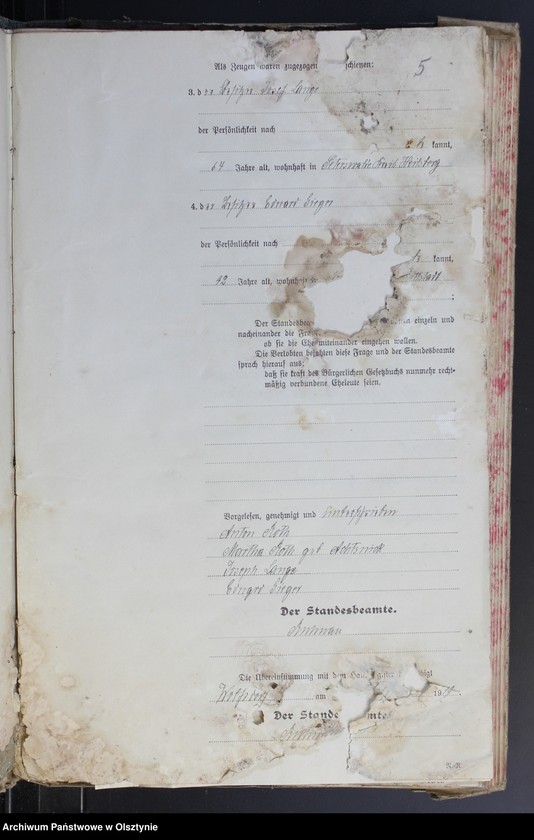 5
Als Zeugen waren zugezogen schienen:
3. der Besitzer Josef Lange
der Persönlichkeit nach
kannt,
64 Jahre alt, wohnhaft in
4. der Besitzer Eduard Sieger
der Persönlichkeit nach
kannt,
42 Jahre alt, wohnhaft
;
Der Standesbea einzeln und
nacheinander die Fra
ob sie die Ehe miteinander eingehen wollen.
Die Verlobten bejahten diese Frage und der Standesbeamte
sprach hierauf aus:
daß sie kraft des Bürgerlichen Gesetzbuchs nunmehr recht-
mäßig verbundene Eheleute seien.
Vorgelesen, genehmigt und unterschrieben
Anton Roth
Martha Roth geb Achtsnick
Joseph Lange
Eduard Sieger
Der Standesbeamte.
Die Übereinstimmung mit dem Hau
am 19
Der Stande amte
R.-A.
Archiwum Państwowe w Olsztynie